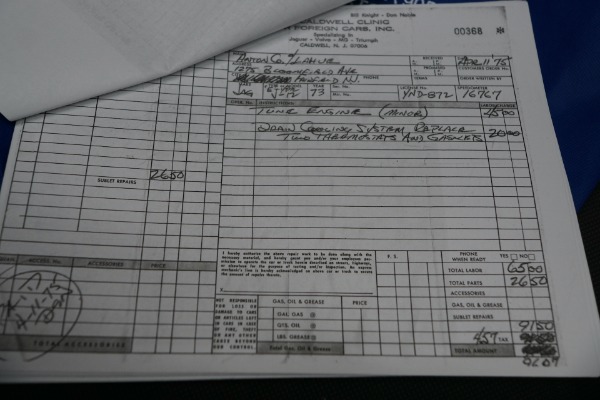 Bill Knight - Don Nagle
CALDWELL CLINIC
FOREIGN CARS, INC.
Specializing In
Jaguar - Volvo - MG - Triumph
CALDWELL, N. J. 07006
00368
RECEIVED
APR 11 '75
PHONE
TERMS
ORDER WRITTEN BY
JAG V-12
YEAR 73
LICENSE No. YND-872
SPEEDOMETER 16767
TUNE ENGINE (MINOR) 45 00
DRAIN COOLING SYSTEM REPLACE
TWO THERMOSTATS AND GASKETS 20 00
26 50
SUBLET REPAIRS
ACCESS No. ACCESSORIES PRICE
TOTAL ACCESSORIES
I hereby authorize the above repair work to be done along with the
necessary material, and hereby grant you and/or your employees per-
mission to operate the car or truck herein described on streets, highways,
or elsewhere for the purpose of testing and/or inspection. An express
mechanic's lien is hereby acknowledged on above car or truck to secure
the amount of repairs thereto.
X
NOT RESPONSIBLE
FOR LOSS OR
DAMAGE TO CARS
OR ARTICLES LEFT
IN CARS IN CASE
OF FIRE, THEFT
OR ANY OTHER
CAUSE BEYOND
OUR CONTROL.
GAS, OIL & GREASE PRICE
GAL. GAS @
QTS. OIL @
LBS. GREASE @
Total Gas, Oil & Grease
PHONE
WHEN READY YES NO
TOTAL LABOR 65 00
TOTAL PARTS 26 50
ACCESSORIES
GAS, OIL & GREASE
SUBLET REPAIRS
91 50
4.57 TAX
TOTAL AMOUNT